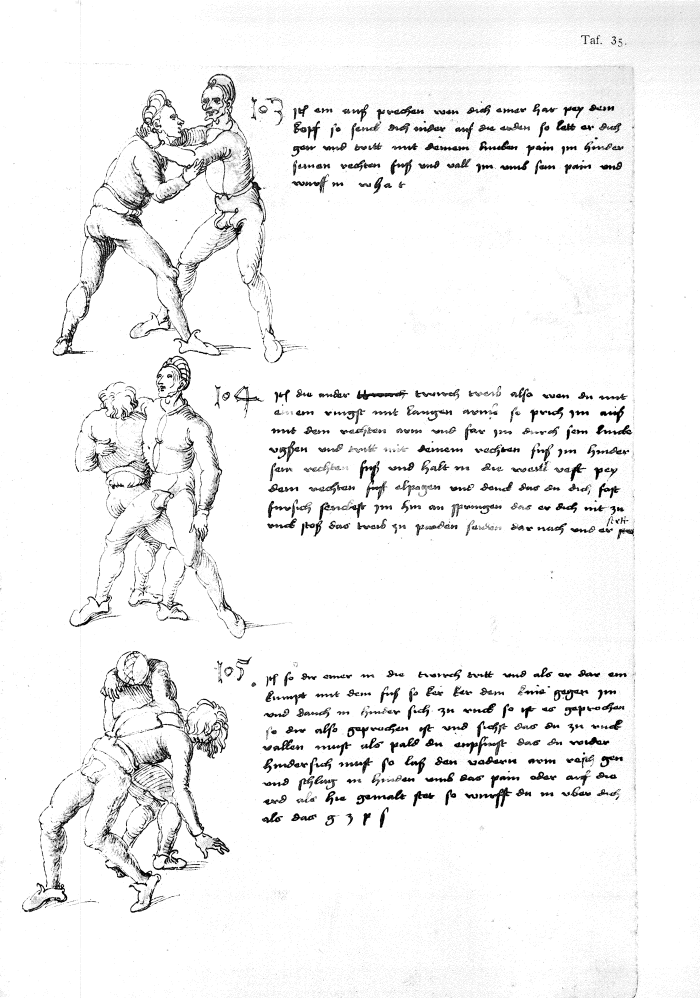 Taf. 35.
103 Itm ein auß prechen wen dich einer hat pey dem
kopf so senck dich nider auf die erden so lett er dich
gen und tritt mit deinem lincken pain im hinder
seinen rechten fuß und vall im umb sein pain und
wurff in w h a t
104 Itm die ander twirch treib also wen du mit
einem ringst mit langen armen so prich im auß
mit dem rechten arm und far im durch sein lincke
und tritt mit deinem rechten fuß im hinder
sein rechten fuß und halt in die weill vest pey
dem rechten elpogen und denck das du dich fast
fursich senckest im hin an springen das er dich nit zu
ruck stoß das treib zu paiden seitten dar nach und er stett
105. Itm so dir einer in die twirch tritt und als er dar ein
kumpt mit dem fuß so ker ker dem knie gegen im
und dauch in hinder sich zu ruck so ist es geprochen
so dir also geprochen ist und sichst das du zu ruck
vallen must als pald du enpfinst das du wider
hindersich must so laß den vodern arm risch gen
und schlag in hinden umb das pain oder auf die
erd als hie gemalt stet so wurff du in uber dich
als das g 3 x s